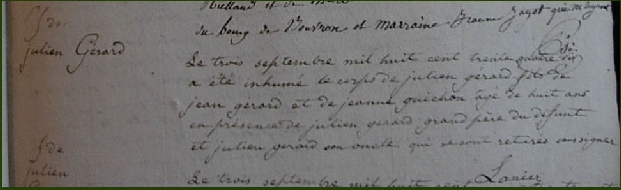 du bourg de et marraine Jeanne
S. de
julien Gérard
Le trois septembre mil huit cent trente quatre
a été inhumé le corps de julien gérard fils de
jean gerard et de jeanne guichon âgé de huit ans
en présence de julien gerard grand père du défunt
et julien gerard son oncle qui se sont retirés sans signer
Lanier
S. de
julien
Le trois septembre mil huit